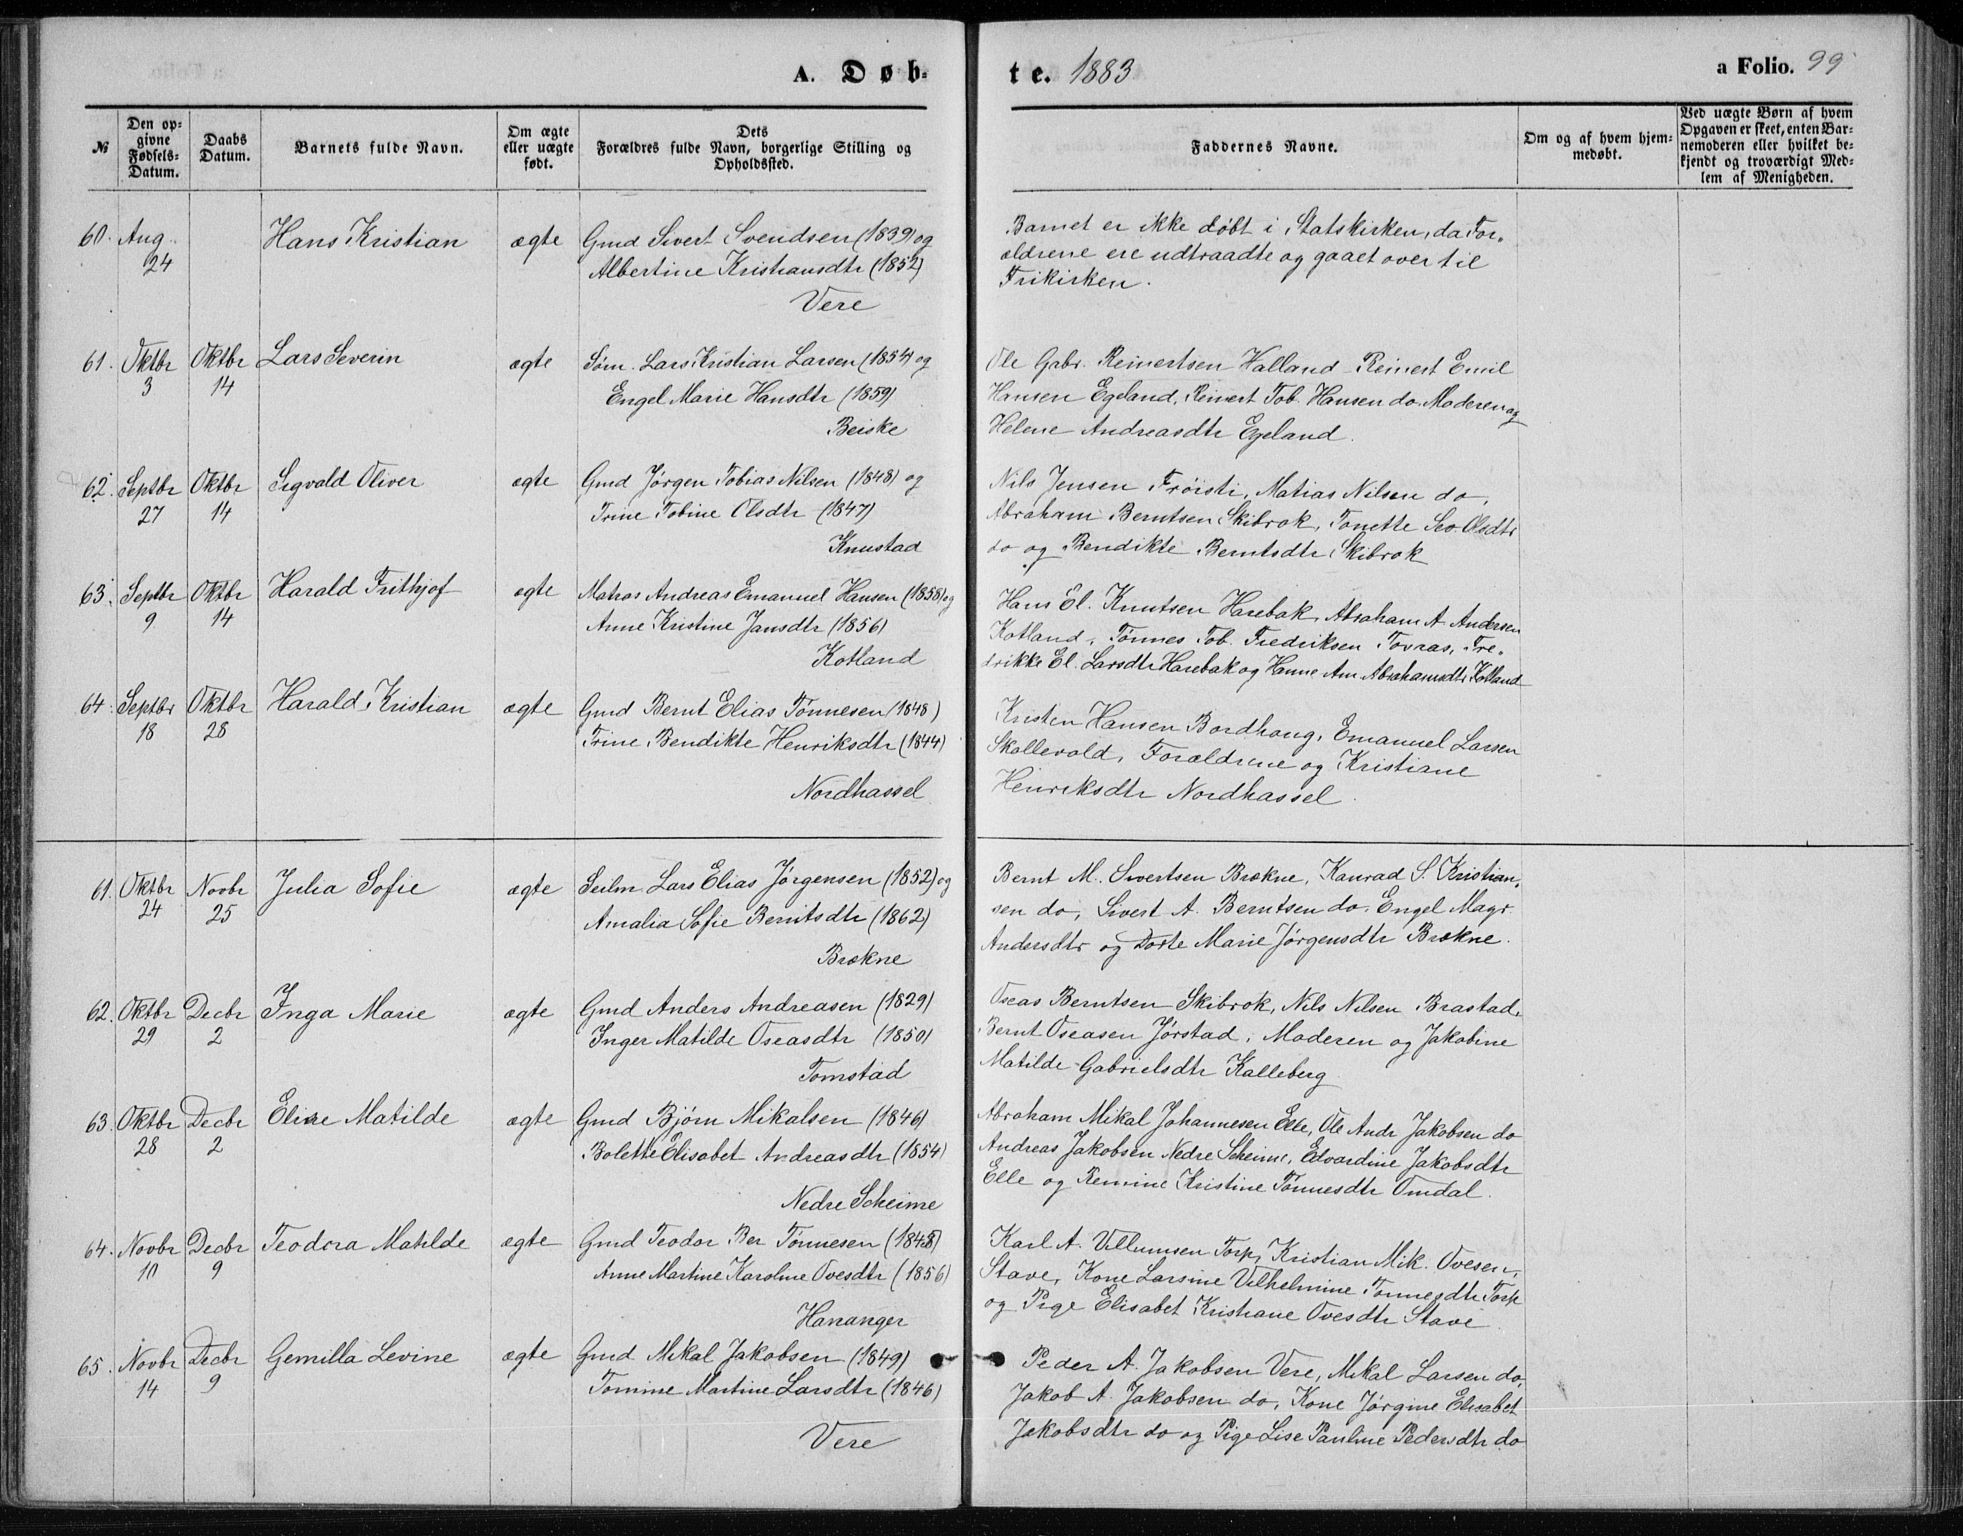 A. Døb-
te. 1883
a Folio. 99
№
Den op-
givne
Fødsels-
Datum.
Daabs
Datum.
Barnets fulde Navn.
Om ægte
eller uægte
født.
Dets
Forældres fulde Navn, borgerlige Stilling og
Opholdssted.
Faddernes Navne.
Om og af hvem hjem-
medøbt.
Ved uægte Børn af hvem
Opgaven er skeet, enten Bar-
nemoderen eller hvilket be-
kjendt og troværdigt Med-
lem af Menigheden.
60. Aug. 24 Hans Kristian ægte Gmd Sivert Svendsen (1839) og
Albertine Kristiansdtr (1852)
Vere
Barnet er ikke døbt i Statskirken, da For-
ældrene ere udtraadte og gaaet over til
Frikirken.
61. Oktbr 3 Oktbr 14 Lars Severin ægte Søm. Lars Kristian Larsen (1854) og
Engel Marie Hansdtr (1859)
Beiske
Ole Gabr. Reinertsen Halland Reinert Emil
Hansen Egeland, Reinert Tob. Hansen do. Moderen og
Helene Andreasdtr Egeland.
62. Septbr 27 Oktbr 14 Sigvald Oliver ægte Gmd Jørgen Tobias Nilsen (1848) og
Trine Tobine Olsdtr (1847)
Knustad
Nils Jensen Frøisti, Matias Nilsen do,
Abraham Berntsen Skibrok, Tonette Sev. Olsdtr
do og Bendikte Berntsdtr Skibrok
63. Septbr 9 Oktbr 14 Harald Frithjof ægte Matros Andreas Emanuel Hansen (1858) og
Anne Kristine Jansdtr (1856)
Kotland
Hans El. Knutsen Harebak, Abraham A. Andersen
Kotland, Tønnes Tob. Fredriksen Tovras, Fre-
drikke El. Larsdtr Harebak og Hanne Am. Abrahamsdtr Kotland
64. Septbr 18 Oktbr 28 Harald Kristian ægte Gmd Bernt Elias Tønnesen (1848)
Trine Bendikte Henriksdtr (1844)
Nordhassel
Kristen Hansen Bordhoug, Emanuel Larsen
Skollevold, Forældrene og Kristiane
Henriksdtr Nordhassel.
61. Oktbr 24 Novbr 25 Julia Sofie ægte Seilm Lars Elias Jørgensen (1852) og
Amalia Sofie Berntsdtr (1862)
Brækne
Bernt M. Sivertsen Brækne, Konrad S. Kristian-
sen do, Sivert A. Berntsen do. Engel Magr.
Andersdtr og Dorte Marie Jørgensdtr Brækne.
62. Oktbr 29 Decbr 2 Inga Marie ægte Gmd Anders Andreasen (1829)
Inger Matilde Oseasdtr (1850)
Tomstad
Oseas Berntsen Skibrok, Nils Nilsen Brastad,
Bernt Oseasen Jørstad, Moderen og Jakobine
Matilde Gabrielsdtr Kalleberg
63. Oktbr 28 Decbr 2 Elise Matilde ægte Gmd Bjørn Mikalsen (1846)
Bolette Elisabet Andreasdtr (1854)
Nedre Scheime
Abraham Mikal Johannesen Elle, Ole Andr Jakobsen do
Andreas Jakobsen Nedre Scheime, Edvardine Jakobsdtr
Elle og Remine Kristine Tønnesdtr Omdal.
64. Novbr 10 Decbr 9 Teodora Matilde ægte Gmd Teodor Ber Tønnesen (1848)
Anne Martine Karoline Ovesdtr (1856)
Hananger
Karl A. Villumsen Torp, Kristian Mik. Ovesen,
Stave, Kone Larsine Vilhelmine Tønnesdtr Torp
og Pige Elisabet Kristiane Ovesdtr Stave
65. Novbr 14 Decbr 9 Gemilla Levine ægte Gmd Mikal Jakobsen (1849)
Tomine Martine Larsdtr (1846)
Vere
Peder A. Jakobsen Vere, Mikal Larsen do,
Jakob A. Jakobsen do, Kone Jørgine Elisabet
Jakobsdtr do og Pige Lise Pauline Pedersdtr do